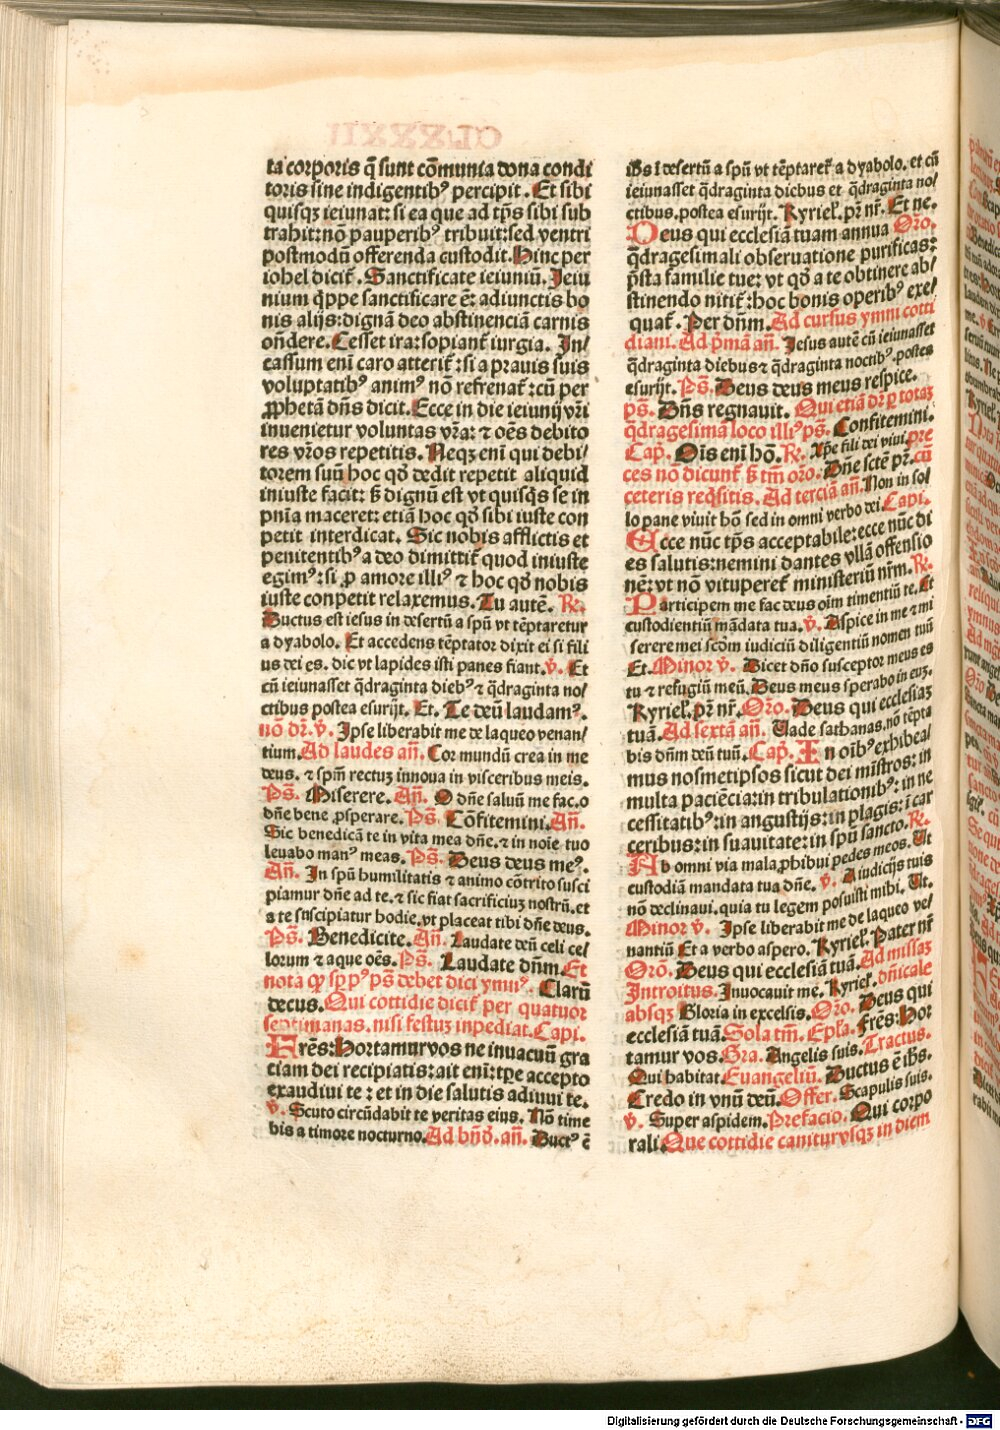 ta corporis q̄ sunt cōmunia dona condi
toris sine indigentibꝰ percipit. Et sibi
quisqꝫ ieiunat: si ea que ad tp̄s sibi sub
trahit: nō pauperibꝰ tribuit: sed ventri
postmodū offerenda custodit. Hinc per
iohel dicit̄. Sanctificate ieiuniū. Ieiu
nium q̄ppe sanctificare ē: adiunctis bo
nis alijs: dignā deo abstinenciā carnis
on̄dere. Cesset ira: sopiant̄ iurgia. In/
cassum eni caro atterit̄: si a prauis suis
voluptatibꝰ animꝰ nō refrenat̄: cū per
ꝓphetā dn̄s dicit. Ecce in die ieiunij vr̄i
inuenietur voluntas vr̄a: ⁊ oēs debito
res vr̄os repetitis. Neqꝫ eni qui debi/
torem suū hoc qd̄ dedit repetit aliquid
iniuste facit: sꝫ dignū est vt quisq̄s se in
pn̄ia maceret: etiā hoc qd̄ sibi iuste con
petit interdicat. Sic nobis afflictis et
penitentibꝰ a deo dimittit̄ quod iniuste
egimꝰ: si ꝓ amore illiꝰ ⁊ hoc qd̄ nobis
iuste conpetit relaxemus. Tu autē. R̄.
Ductus est iesus in desertū a spū vt tēptaretur
a dyabolo. Et accedens tēptator dixit ei si fili
us dei es. dic vt lapides isti panes fiant. v̄. Et
cū ieiunasset q̄draginta diebꝰ ⁊ q̄draginta no/
ctibus postea esurijt. Et. Te deū laudamꝰ.
nō dr̄. v̄. Ipse liberabit me de laqueo venan/
tium. Ad laudes an̄. Cor mundū crea in me
deus. ⁊ spm̄ rectuꝫ innoua in visceribus meis.
Ps̄. Miserere. An̄. O dn̄e saluū me fac. o
dn̄e bene ꝓsperare. Ps̄. Cōfitemini. An̄.
Sic benedicā te in vita mea dn̄e. ⁊ in noīe tuo
leuabo manꝰ meas. Ps̄. Deus deus meꝰ.
An̄. In spū humilitatis ⁊ animo cōtrito susci
piamur dn̄e ad te. ⁊ sic fiat sacrificiuꝫ nostrū. et
a te suscipiatur hodie. vt placeat tibi dn̄e deus.
Ps̄. Benedicite. An̄. Laudate deū celi ce/
lorum ⁊ aque oēs. Ps̄. Laudate dn̄m. Et
nota ꝙ sp̄ pꝰ ps̄ debet dici ymnꝰ. Clarū
decus. Qui cottidie dicit̄ per quatuor
septimanas. nisi festuꝫ inpediat. Capi.
Frēs: Hortamur vos ne in uacuū gra
ciam dei recipiatis: ait eni: tp̄e accepto
exaudiui te: et in die salutis adiuui te.
v̄. Scuto circūdabit te veritas eius. Nō time
bis a timore nocturno. Ad bn̄d. an̄. Ductꝰ ē
ihs̄ ī desertū a spū vt tēptaret̄ a dyabolo. et cū
ieiunasset q̄draginta diebus et q̄draginta no/
ctibus. postea esurijt. Kyriel̄. pr̄ nr̄. Et ne.
Deus qui ecclesiā tuam annua Oro.
q̄dragesimali obseruatione purificas:
p̄sta familie tue: vt qd̄ a te obtinere ab/
stinendo nitit̄: hoc bonis operibꝰ exe/
quat̄. Per dn̄m. Ad cursus ymni cotti
diani. Ad p̄mā an̄. Iesus autē cū ieiunasset
q̄draginta diebus ⁊ q̄draginta noctibꝰ. postea
esurijt. Ps̄. Deus deus meus respice.
ps̄. Dn̄s regnauit. Qui etiā dr̄ p totaꝫ
q̄dragesima loco illiꝰ ps̄. Confitemini.
Cap. Oīs eni hō. R̄. Xp̄e fili dei viui. pre
ces nō dicunt̄ sꝫ tm̄ oro. Dn̄e scte pr̄. cū
ceteris req̄sitis. Ad terciā an̄. Non in sol
lo pane viuit hō sed in omni verbo dei. Capi.
Ecce nūc tp̄s acceptabile: ecce nūc di
es salutis: nemini dantes vllā offensio
nē: vt nō vituperet̄ ministeriū nr̄m. R̄.
Participem me fac deus oīm timentiū te. Et
custodientiū mādata tua. v̄. Aspice in me ⁊ mi
serere mei scd̄m iudiciū diligentiū nomen tuū
Et. Minor v̄. Dicet dn̄o susceptor meus es
tu ⁊ refugiū meū. Deus meus sperabo in euꝫ.
Kyriel̄. pr̄ nr̄. Oro. Deus qui ecclesiaꝫ
tuā. Ad sextā an̄. Uade sathanas. nō tēpta
bis dn̄m deū tuū. Cap̄. In oībꝰ exhibea/
mus nosmetipsos sicut dei mīstros: in
multa paciēcia: in tribulationibꝰ: in ne
cessitatibꝰ: in angustijs: in plagis: ī car
ceribus: in suauitate: in spū sancto. R̄.
Ab omni via mala ꝓhibui pedes meos. Ut
custodiā mandata tua dn̄e. v̄. A iudicijs tuis
nō declinaui. quia tu legem posuisti mihi. Ut.
Minor v̄. Ipse liberabit me de laqueo ve/
nantiū Et a verbo aspero. Kyriel̄. Pater nr̄
Oro. Deus qui ecclesiā tuā. Ad missaꝫ
Introitus. Inuocauit me. Kyriel̄. dn̄icale
absqꝫ Gloria in excelsis. Oro. Deus qui
ecclesiā tuā. Sola tm̄. Epl̄a. Frēs: Hor
tamur vos. Gra. Angelis suis. Tractus.
Qui habitat Euangeliū. Ductus ē ihs̄.
Credo in vnū deū. Offer. Scapulis suis.
v̄. Super aspidem. Prefacio. Qui corpo
rali. Que cottidie canitur vsqꝫ in diem
Digitalisierung gefördert durch die Deutsche Forschungsgemeinschaft - DFG